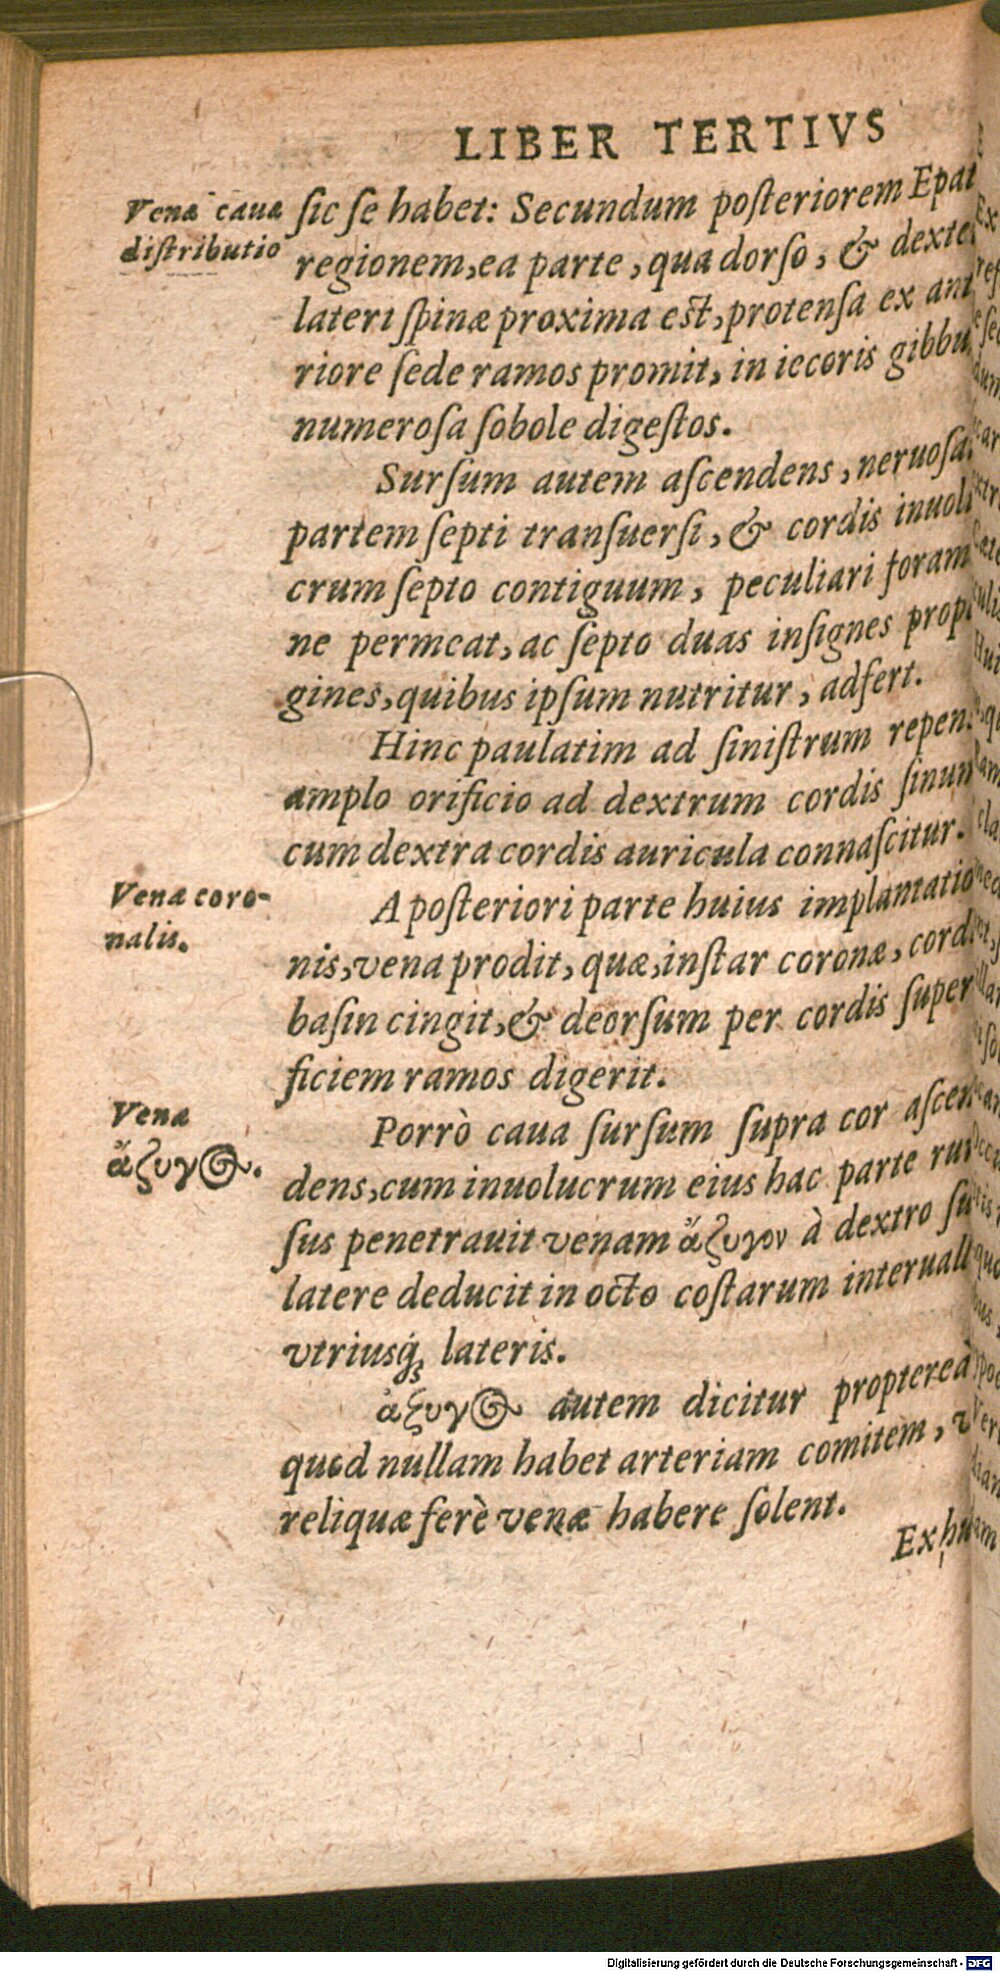 LIBER TERTIVS
Venæ cauæ
distributio
sic se habet: Secundum posteriorem Epat
regionem, ea parte, qua dorso, & dexte
lateri spinæ proxima est, protensa ex ant
riore sede ramos promit, in iecoris gibbu
numerosa sobole digestos.
Sursum autem ascendens, neruosa
partem septi transuersi, & cordis inuolu
crum septo contiguum, peculiari foram
ne permeat, ac septo duas insignes prop
gines, quibus ipsum nutritur, adfert.
Hinc paulatim ad sinistrum repen
amplo orificio ad dextrum cordis sinum
cum dextra cordis auricula connascitur.
Venæ coro-
nalis.
A posteriori parte huius implantatio
nis, vena prodit, quæ, instar coronæ, cord
basin cingit, & deorsum per cordis super
ficiem ramos digerit.
Vena
ἄζυγος.
Porrò caua sursum supra cor ascen
dens, cum inuolucrum eius hac parte rur
sus penetrauit venam ἄζυγον à dextro su
latere deducit in octo costarum interuall
vtriusq́; lateris.
ἄζυγος autem dicitur propterea
quod nullam habet arteriam comitem, v
reliquæ ferè venæ habere solent.
Ex hu
Digitalisierung gefördert durch die Deutsche Forschungsgemeinschaft - DFG